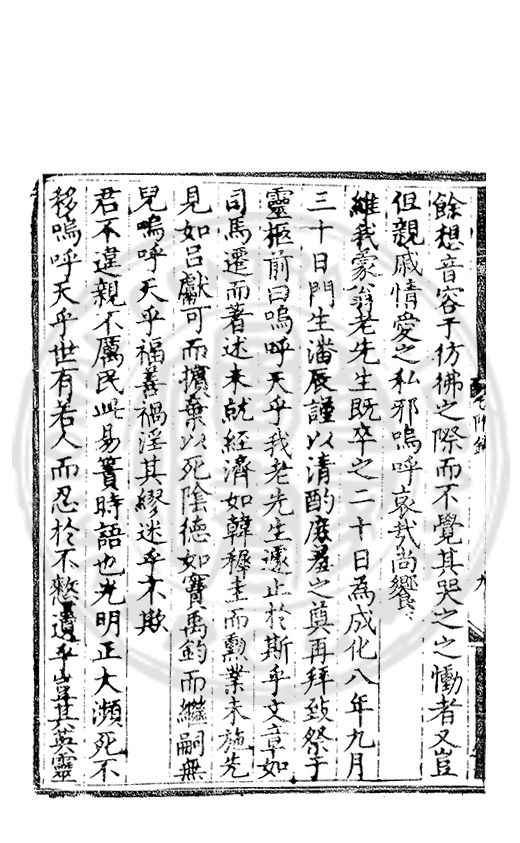 餘想音容于彷彿之際而不覺其哭之之慟者又豈
但親戚情愛之私邪嗚呼哀哉尚饗
維我蒙翁老先生既卒之二十日為成化八年九月
三十日門生潘辰謹以清酌庶羞之奠再拜致祭于
靈柩前曰嗚呼天乎我老先生遽止於斯乎文章如
司馬遷而著述未就經濟如韓穉圭而勲業未施先
見如呂獻可而擯棄以死陰德如竇禹鈞而繼嗣無
兒嗚呼天乎福善禍淫其繆迷乎不欺
君不違親不厲民此易簀時語也光明正大瀕死不
移嗚呼天乎世有若人而忍於不憗遺乎豈其英靈
九